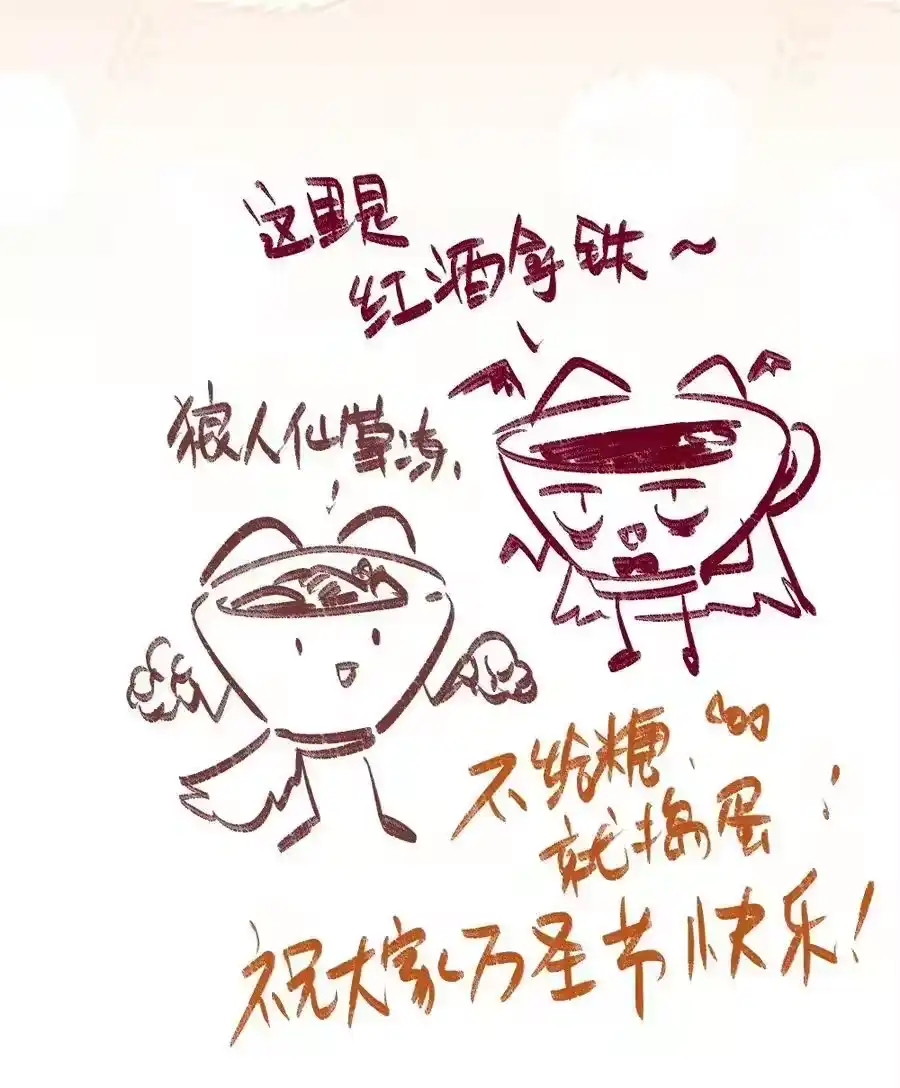 这里是
红酒拿铁~
狼人仙草冻、
不给糖、
就捣蛋!
祝大家万圣节快乐!